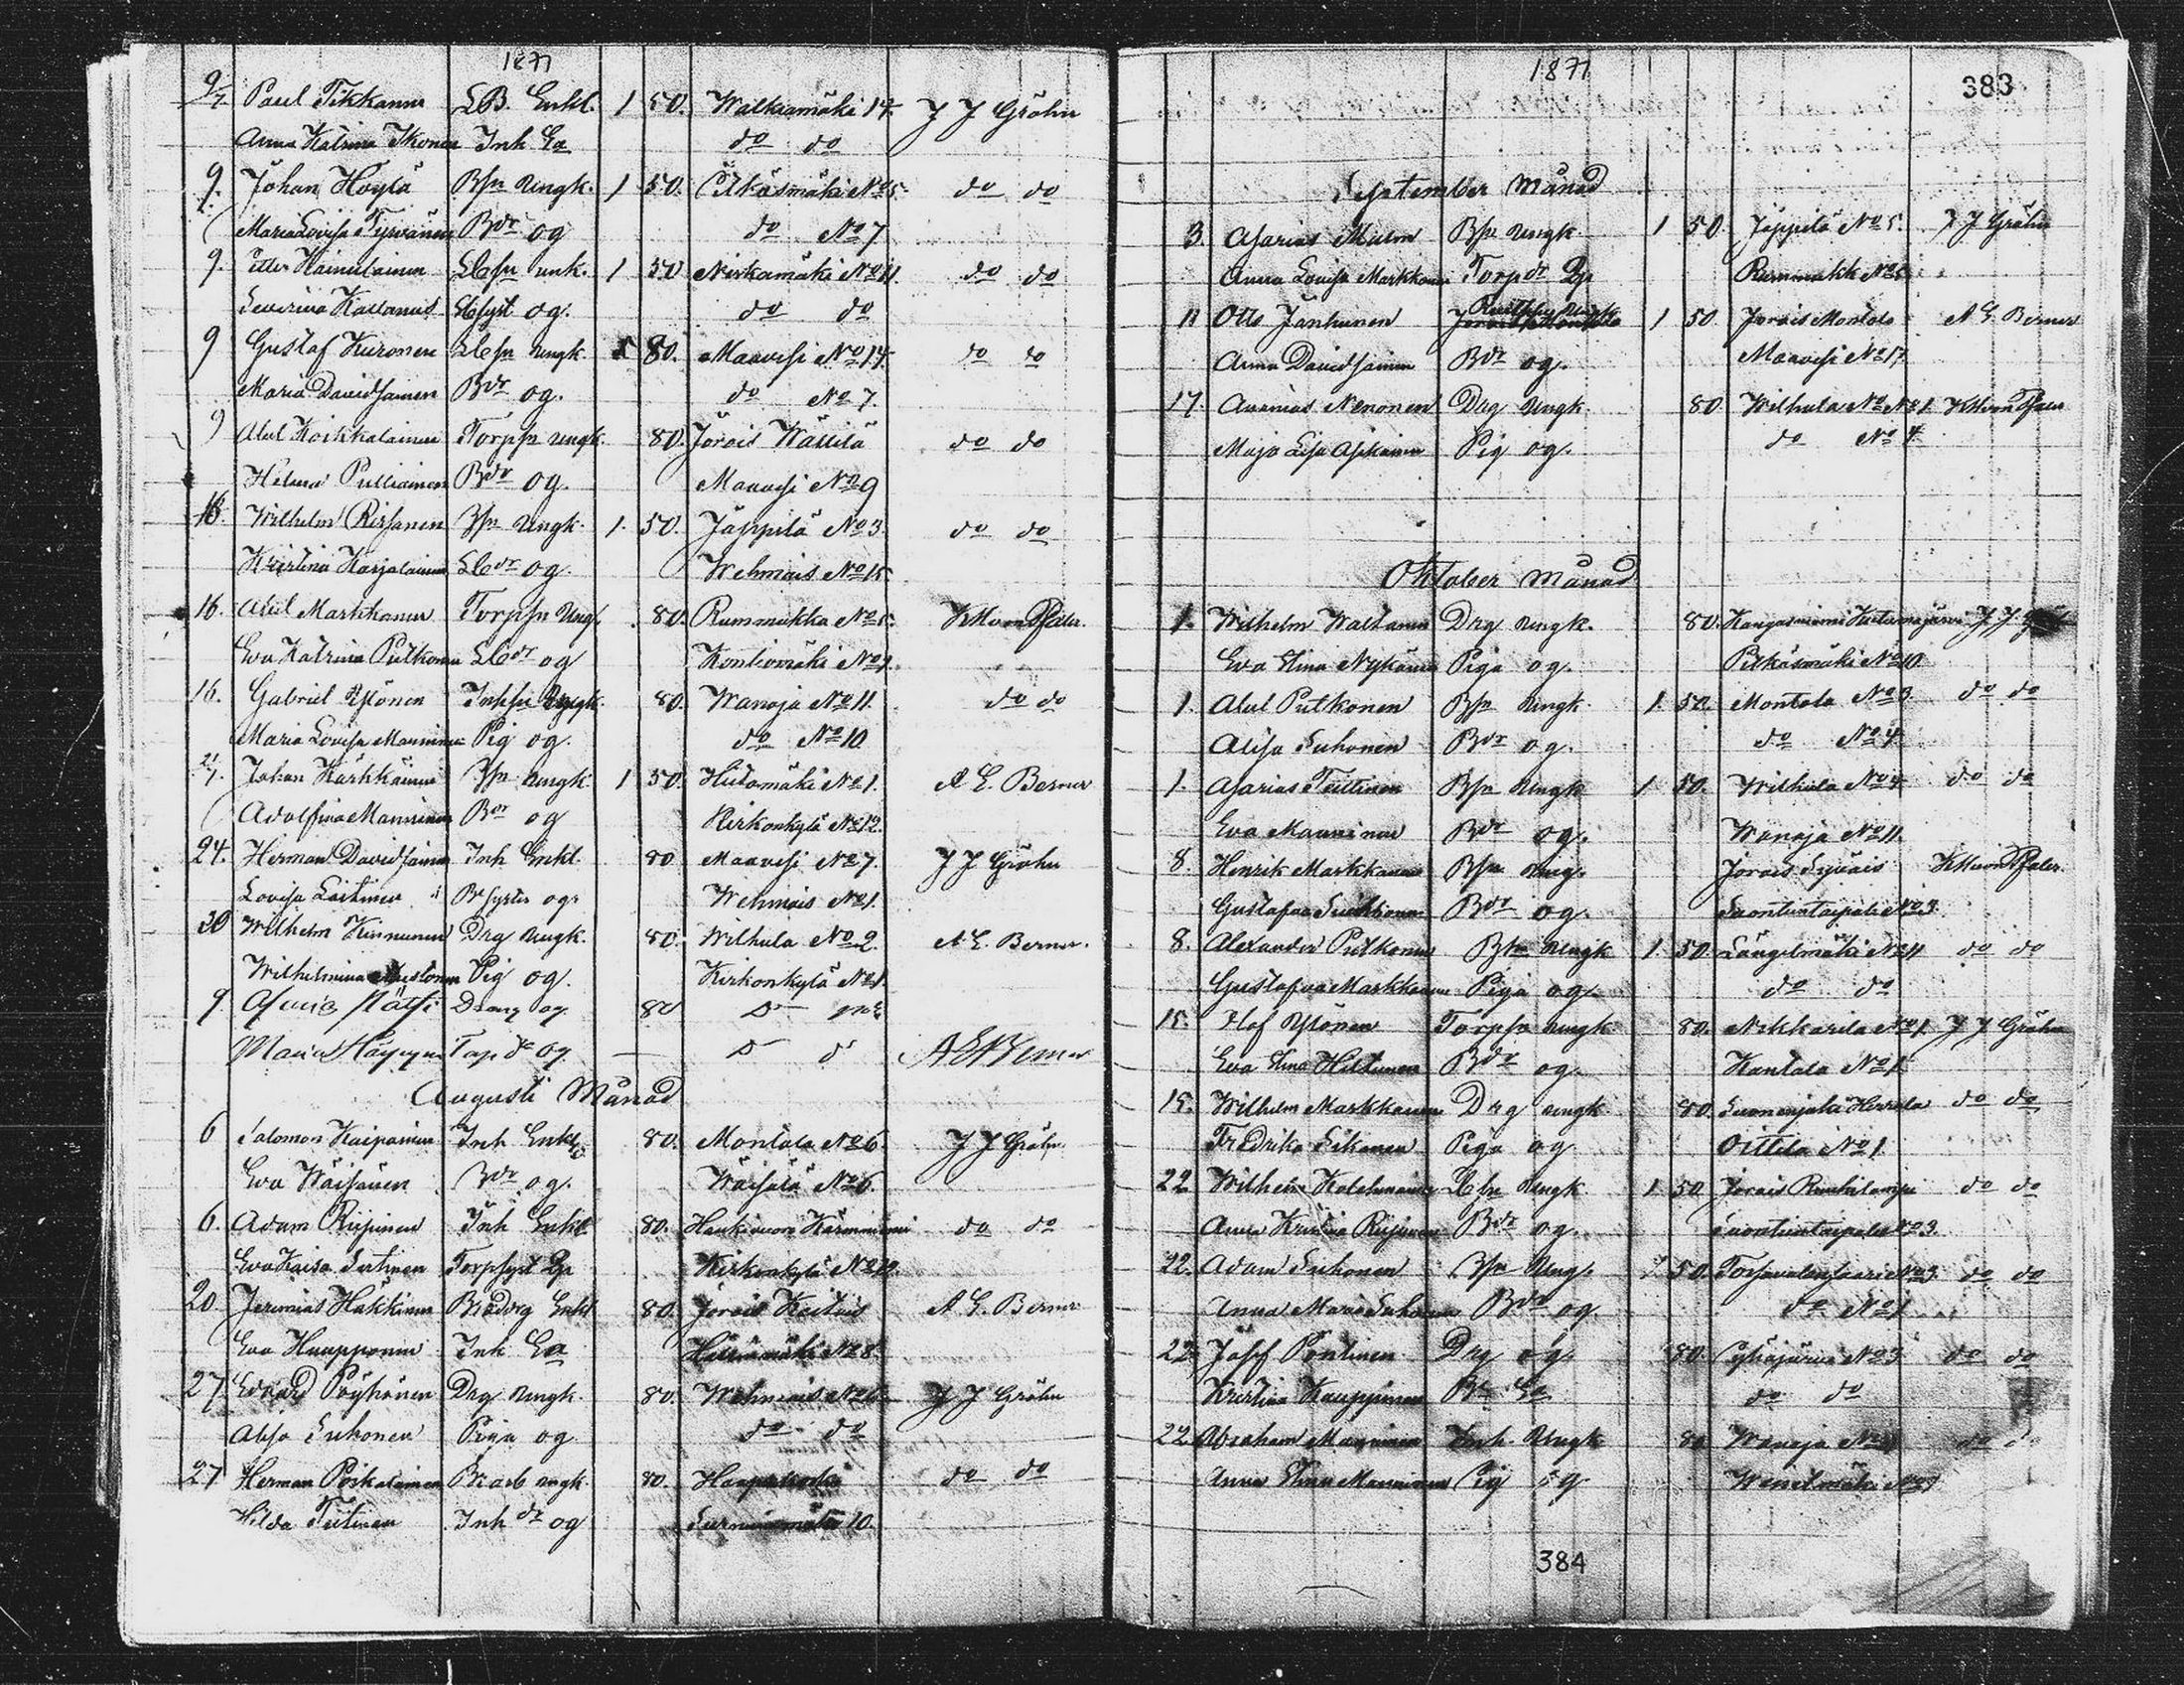 1871
9/7. Paul Tikkanen LB. Enkl. 1 50. Walkiamäki 14. J J Gröhn
Anna Katrina Ikonen Inh Ea do do
9. Johan Höylä Bsn Ungk. 1 50. Pitkäsmäki No 5. do do
Maria Lovisa Tyrvänen Bdr og do No 7
9. Petter Hainulainen Lbsn unk. 1 50 Niskamäki No 11. do do
Severina Kallanus Lbsyst og. do do
9 Gustaf Kuronen Lbsn Ungk. 80. Maavesi No 14. do do
Maria Davidsainen Bdr og. do No 7.
9 Abel Koikkalainen Torpsn Ungk. 80. Jorois Wättilä do do
Helena Pulliainen Bdr og. Maavesi No 9
16. Wilhelm Rissanen Bsn Ungk. 1. 50. Jäppilä No 3. do do
Kristina Karjalainen Lbdr og. Wehmais No 15.
16. Abel Markkanen Torpsn Ung. 80. Rummukka No 5. K H von Pfaler.
Eva Katrina Putkonen Lbdr og Kontiomäki No 9.
16. Gabriel Ylönen Inhsn Ungk. 80. Wanaja No 11. do do
Maria Lovisa Manninen Pig og. do No 10
21/7. Johan Kärkkäinen Bsn Ungk. 1 50. Hiidamäki No 1. A E. Berner
Adolfina Manninen Bdr og Kirkonkylä No 12.
24. Herman Davidsainen Inh Enkl. 80 Maavesi No 7. J J Gröhn
Lovisa Laitinen Br syster og. Wehmais No 1.
30 Wilhelm Kinnunen Drg Ungk. 80. Wilhula No 2. A E. Berner.
Wilhelmina Mustonen Pig og. Kirkonkylä No 1.
9. Drang og. 80
Maria Häyrynen Torp dr og. A E Berner
Augusti Månad
6 Salomon Kaipainen Inh Enkl. 80. Montola No 6. J J Gröhn
Eva Wäisänen Bdr og. Wäisälä No 6.
6. Adam Riipinen Inh Enkl 80. Haukivuori do do
Eva Kaisa Torpsyst Kirkonkylä No 12.
20. Jeremias Häkkinen Enkl 80. Jorois A E. Berner
Eva Kauppinen Inh Ea Hällinmäki No 8.
27. Edvard Pöyhönen Drg Ungk. 80. Wehmais No 6. J J Gröhn
Alisa Suhonen Piga og. do do
27 Herman Poikalainen ungk. 80. Haapakoski do do
Hilda Teitinen Inh dr og 10.
1871
383
September Månad
3. Asarias Malm Bsn Ungk 1 50. Jäppilä No 5. J J Gröhn
Anna Lovisa Markkanen Torp dr No 5
11 Otto Janhunen 1 50 Jorois Montola A E. Berner
Anna Davidsainen Bdr og. Maavesi No 17
17. Ananias Nenonen Drg Ungk. 80 Wilhula No 1. K H von Pfaler
Maja Lisa Asikainen Pig og. do No 4.
Oktober Månad
1. Wilhelm Wallanen Drg Ungk. 80. Kangasniemi J J
Eva Stina Nykänen Piga og. Pitkäsmäki No 10
1. Abel Putkonen Bsn Ungk 1. 50. Montola No 3. do do
Alisa Suhonen Bdr og. do No 4
1. Asarias Teittinen Bsn Ungk 1 50. Wilhula No 4 do do
Eva Manninen Bdr og. Wanaja No 11.
8. Henrik Markkanen Bsn Ung. Jorois Syväis K H von Pfaler.
Gustafva Bdr og. Suontientaipale No 3.
8. Alexander Putkonen Bsn Ungk 1. 50. Längelmäki No 11 do do
Gustafva Markkanen Piga og. do do
15. Olof Ylönen Torpsn Ungk 80. Nikkarila No 1. J J Gröhn
Eva Stina Hiltunen Bdr og. Hantala No 1
15. Wilhelm Markkanen Drg ungk 80. Suonenjoki Herrala do do
Fredrika Sikanen Piga og Oittila No 1
22 Wilhelm Kolehmainen Lbsn Ungk 1 50. Jorois Ruuhilampi do do
Anna Kristina Riipinen Bdr og. Suontientaipale No 3.
22. Adam Suhonen Bsn Ung. 50. No 3. do do
Anna Maria Suhonen Bdr og. do No 1
22. Josef Pöntinen Drg og. 80. Pyhäjärvi No 3 do do
Kristina Kauppinen Ea do do
22 Abraham Manninen Inh. Ungk 80 Wanaja do do
Anna Stina Manninen Pig og
384